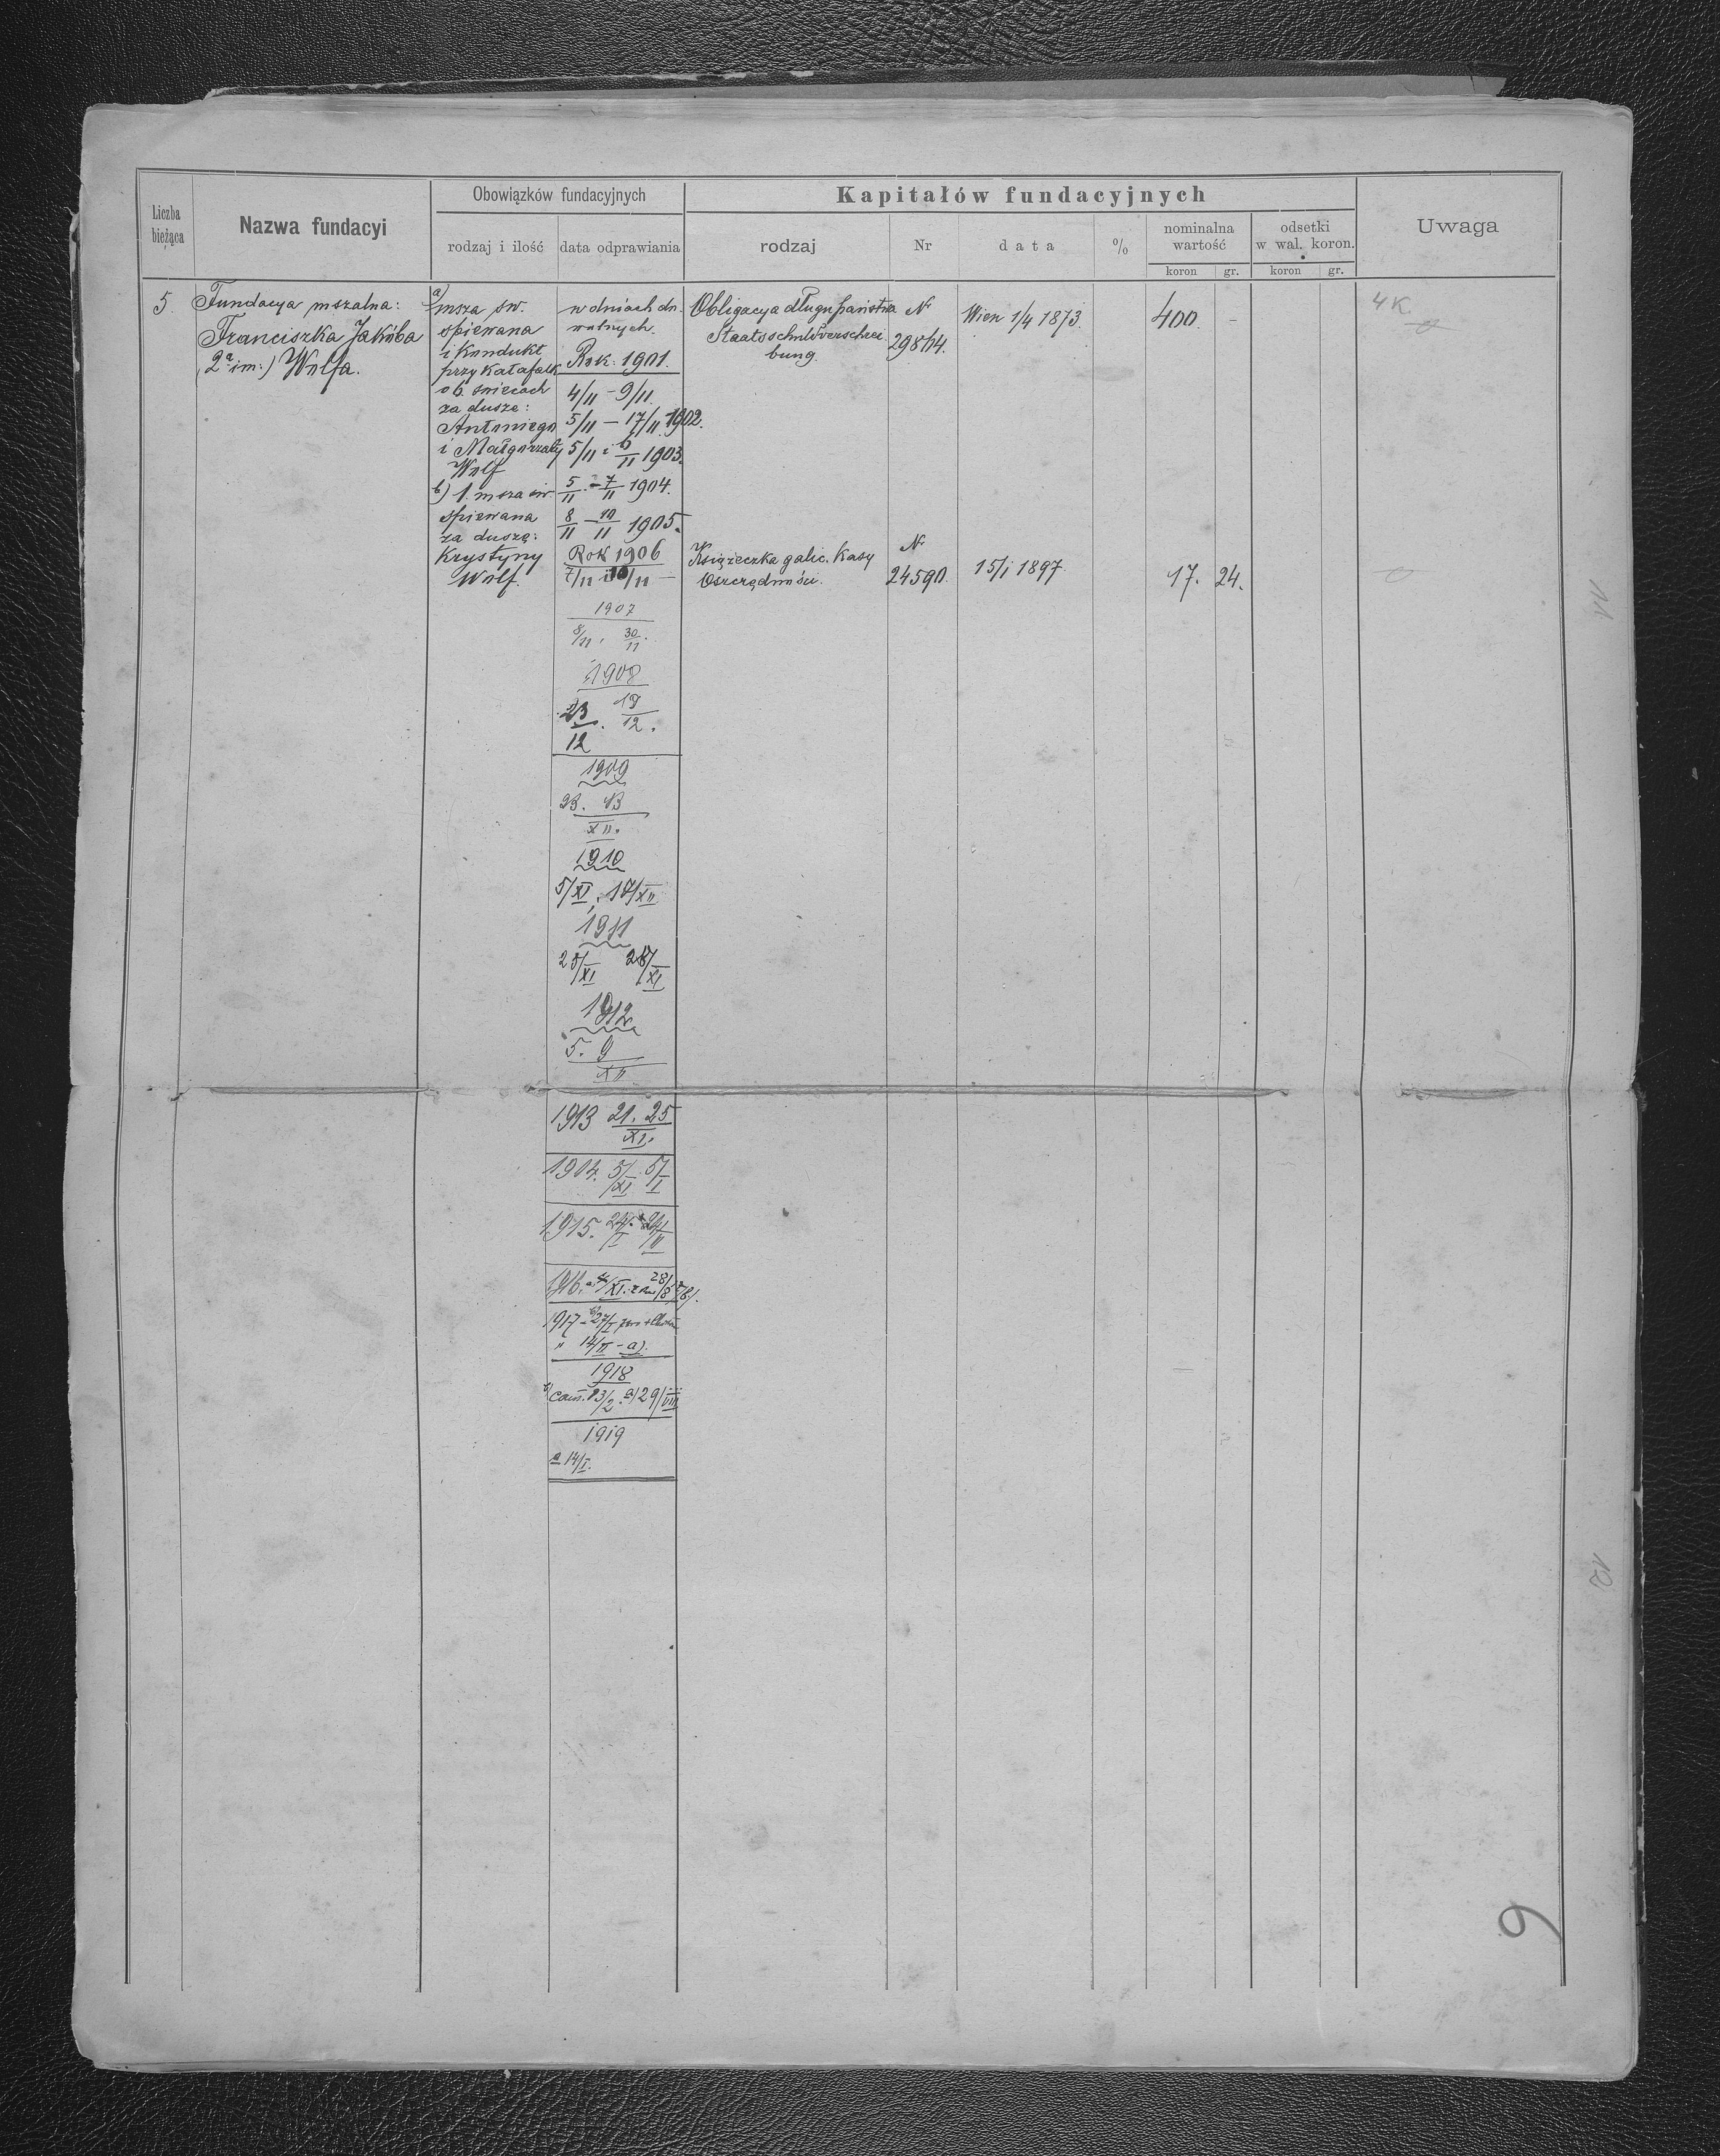 Liczba bieżąca
Nazwa fundacyi
Obowiązków fundacyjnych
rodzaj i ilość
data odprawiania
Kapitałów fundacyjnych
rodzaj
Nr
data
%
nominalna wartość
koron gr.
odsetki w wal. koron.
koron gr.
Uwaga
5.
Fundacya mszalna:
Franciszka Jakóba
(2ª im:) Wolfa.
a)
msza św.
śpiewana
i Kondukt
przy katafalk
o 6 świecach
za duszę:
Antoniego
i Małgorzaty
Wolf
b) 1. msza św
śpiewana
za duszę:
Krystyny
Wolf.
w dniach dn.
wolnych.
Rok: 1901.
4/11 - 9/11
5/11 - 17/11 1902.
5/11 i 6/11 1903.
5/11 - 7/11 1904.
8/11 - 10/11 1905.
Rok 1906
7/11 i 10/11 -
1907
8/11. 30/11.
1908
23/12. 19/12.
1909
23. 13
XII.
1910
5/XI, 17/XII
1911
25/XI 28/XI
1912
5. 9
XII
1913 21. 25
XI.
1904. 5/XI 5/I
1915.
1916.
1917 - b) 27/I
" 14/II - a).
1918
b) 13/2. a) 29/VIII
1919
a 14/I.
Obligacya długu państwa
Staatsschuldverschrei
bung.
N
29814.
Wien 1/4 1873.
400. -
4 K
Książeczka galic. Kasy
Oszczędności.
N
24590.
15/I 1897.
17. 24.
11
12
9